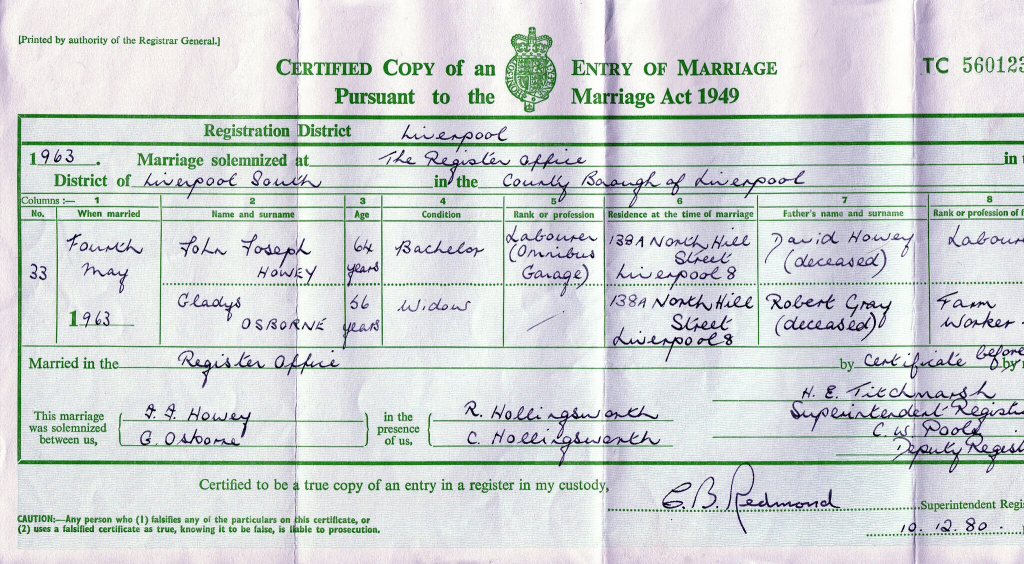 [Printed by authority of the Registrar General.]
CERTIFIED COPY of an ENTRY OF MARRIAGE
Pursuant to the Marriage Act 1949
TC 560123
Registration District Liverpool
1963. Marriage solemnized at The Register Office in
District of Liverpool South in the County Borough of Liverpool
Columns :— 1 2 3 4 5 6 7 8
No. When married Name and surname Age Condition Rank or profession Residence at the time of marriage Father's name and surname Rank or profession of
33 Fourth May 1963
John Joseph HOWEY
64 years
Bachelor
Labourer (Omnibus Garage)
138A North Hill Street Liverpool 8
David Howey (deceased)
Labour
Gladys OSBORNE
56 years
Widow
138A North Hill Street Liverpool 8
Robert Gray (deceased)
Farm Worker
Married in the Register Office by Certificate before by
This marriage was solemnized between us,
J. J. Howey
G. Osborne
in the presence of us,
R. Hollingsworth
C. Hollingsworth
H. E. Titchmarsh
Superintendent Regist
C. W. Poole
Deputy Regist
Certified to be a true copy of an entry in a register in my custody,
C. B. Redmond Superintendent Regi
10. 12. 80.
CAUTION:—Any person who (1) falsifies any of the particulars on this certificate, or
(2) uses a falsified certificate as true, knowing it to be false, is liable to prosecution.